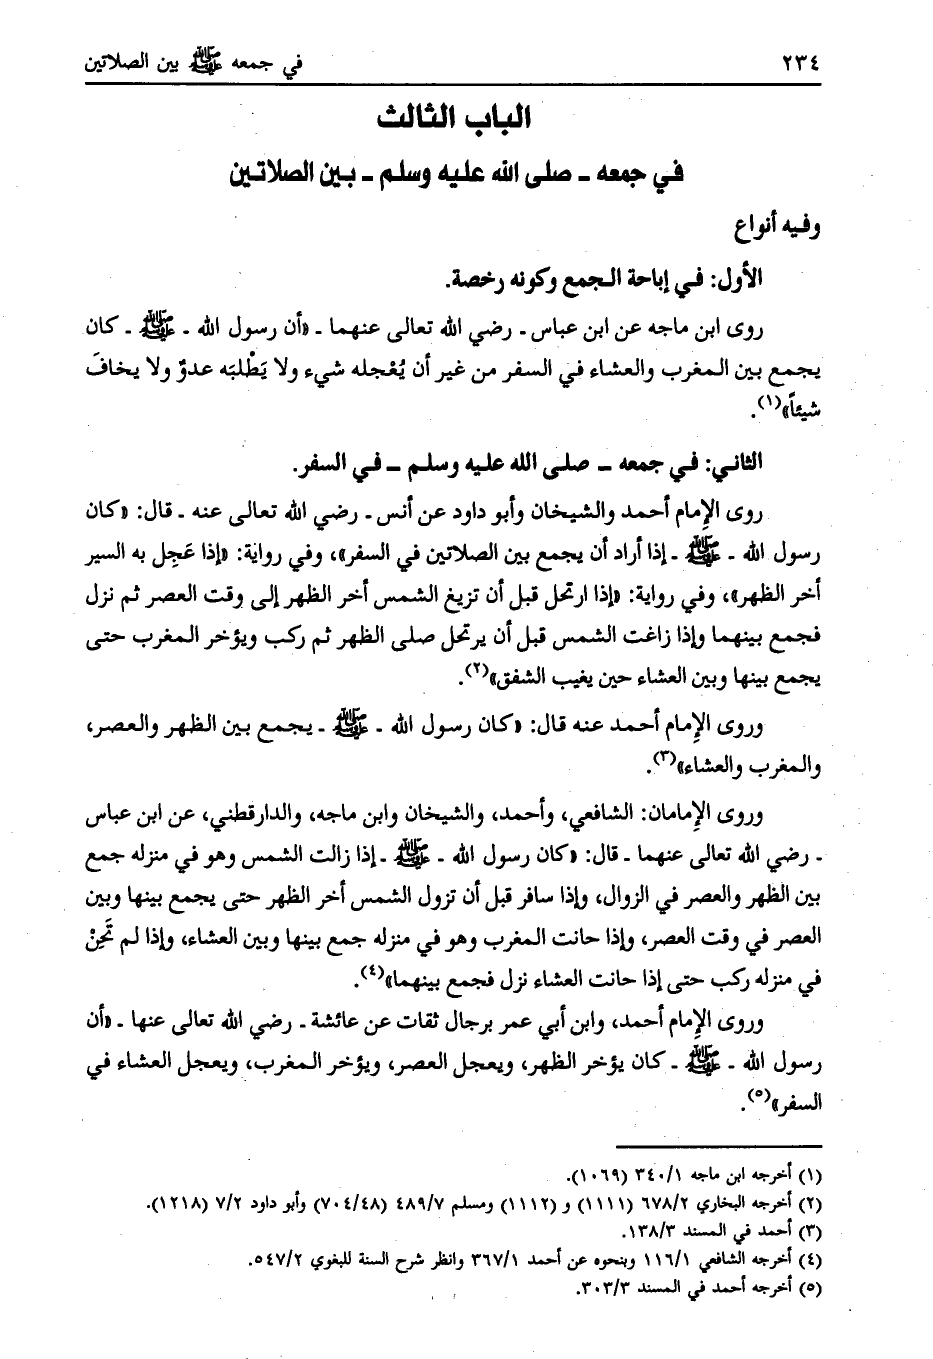 ٢٣٤
في جمعه ﷺ بين الصلاتين
الباب الثالث
في جمعه ـ صلى الله عليه وسلم ـ بين الصلاتين
وفيه أنواع
الأول: في إباحة الجمع وكونه رخصة.
روى ابن ماجه عن ابن عباس ـ رضي الله تعالى عنهما ـ «أن رسول الله ـ ﷺ ـ كان
يجمع بين المغرب والعشاء في السفر من غير أن يُعْجله شيء ولا يَطْلبَه عدوٌ ولا يخافَ
شيئاً»(١).
الثاني: في جمعه ـ صلى الله عليه وسلم ـ في السفر.
روى الإمام أحمد والشيخان وأبو داود عن أنس ـ رضي الله تعالى عنه ـ قال: «كان
رسول الله ـ ﷺ ـ إذا أراد أن يجمع بين الصلاتين في السفر»، وفي رواية: «إذا عَجِل به السير
أخر الظهر»، وفي رواية: «إذا ارتحل قبل أن تزيغ الشمس أخر الظهر إلى وقت العصر ثم نزل
فجمع بينهما وإذا زاغت الشمس قبل أن يرتحل صلى الظهر ثم ركب ويؤخر المغرب حتى
يجمع بينها وبين العشاء حين يغيب الشفق»(٢).
وروى الإمام أحمد عنه قال: «كان رسول الله ـ ﷺ ـ يجمع بين الظهر والعصر،
والمغرب والعشاء»(٣).
وروى الإمامان: الشافعي، وأحمد، والشيخان وابن ماجه، والدارقطني، عن ابن عباس
ـ رضي الله تعالى عنهما ـ قال: «كان رسول الله ـ ﷺ ـ إذا زالت الشمس وهو في منزله جمع
بين الظهر والعصر في الزوال، وإذا سافر قبل أن تزول الشمس أخر الظهر حتى يجمع بينها وبين
العصر في وقت العصر، وإذا حانت المغرب وهو في منزله جمع بينها وبين العشاء، وإذا لم تَحِنْ
في منزله ركب حتى إذا حانت العشاء نزل فجمع بينهما»(٤).
وروى الإمام أحمد، وابن أبي عمر برجال ثقات عن عائشة ـ رضي الله تعالى عنها ـ «أن
رسول الله ـ ﷺ ـ كان يؤخر الظهر، ويعجل العصر، ويؤخر المغرب، ويعجل العشاء في
السفر»(٥).
(١) أخرجه ابن ماجه ٣٤٠/١ (١٠٦٩).
(٢) أخرجه البخاري ٦٧٨/٢ (١١١١) و (١١١٢) ومسلم ٤٨٩/٧ (٧٠٤/٤٨) وأبو داود ٧/٢ (١٢١٨).
(٣) أحمد في المسند ١٣٨/٣.
(٤) أخرجه الشافعي ١١٦/١ وبنحوه عن أحمد ٣٦٧/١ وانظر شرح السنة للبغوي ٥٤٧/٢.
(٥) أخرجه أحمد في المسند ٣٠٣/٣.